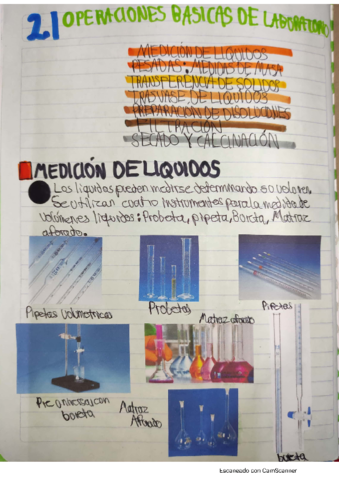 2.1 OPERACIONES BASICAS DE LABORATORIO
MEDICIÓN DE LIQUIDOS
PESADAS: MEDIDAS DE MASA
TRANSFERENCIA DE SOLIDOS
TRASVASE DE LIQUIDOS
PREPARACIÓN DE DISOLUCIONES
FILTRACIÓN
SECADO Y CALCINACIÓN
MEDICIÓN DE LIQUIDOS
Los liquidos pueden medirse determinando su volumen.
Se utilizan cuatro instrumentos para la medida de
volúmenes liquidos: Probeta, pipeta, Bureta, Matraz
aforado.
Pipetas volumetricas
Probetas
Pipetas
Matraz aforado
con
bureta
Matraz
Aforado
bureta
Escaneado con CamScanner